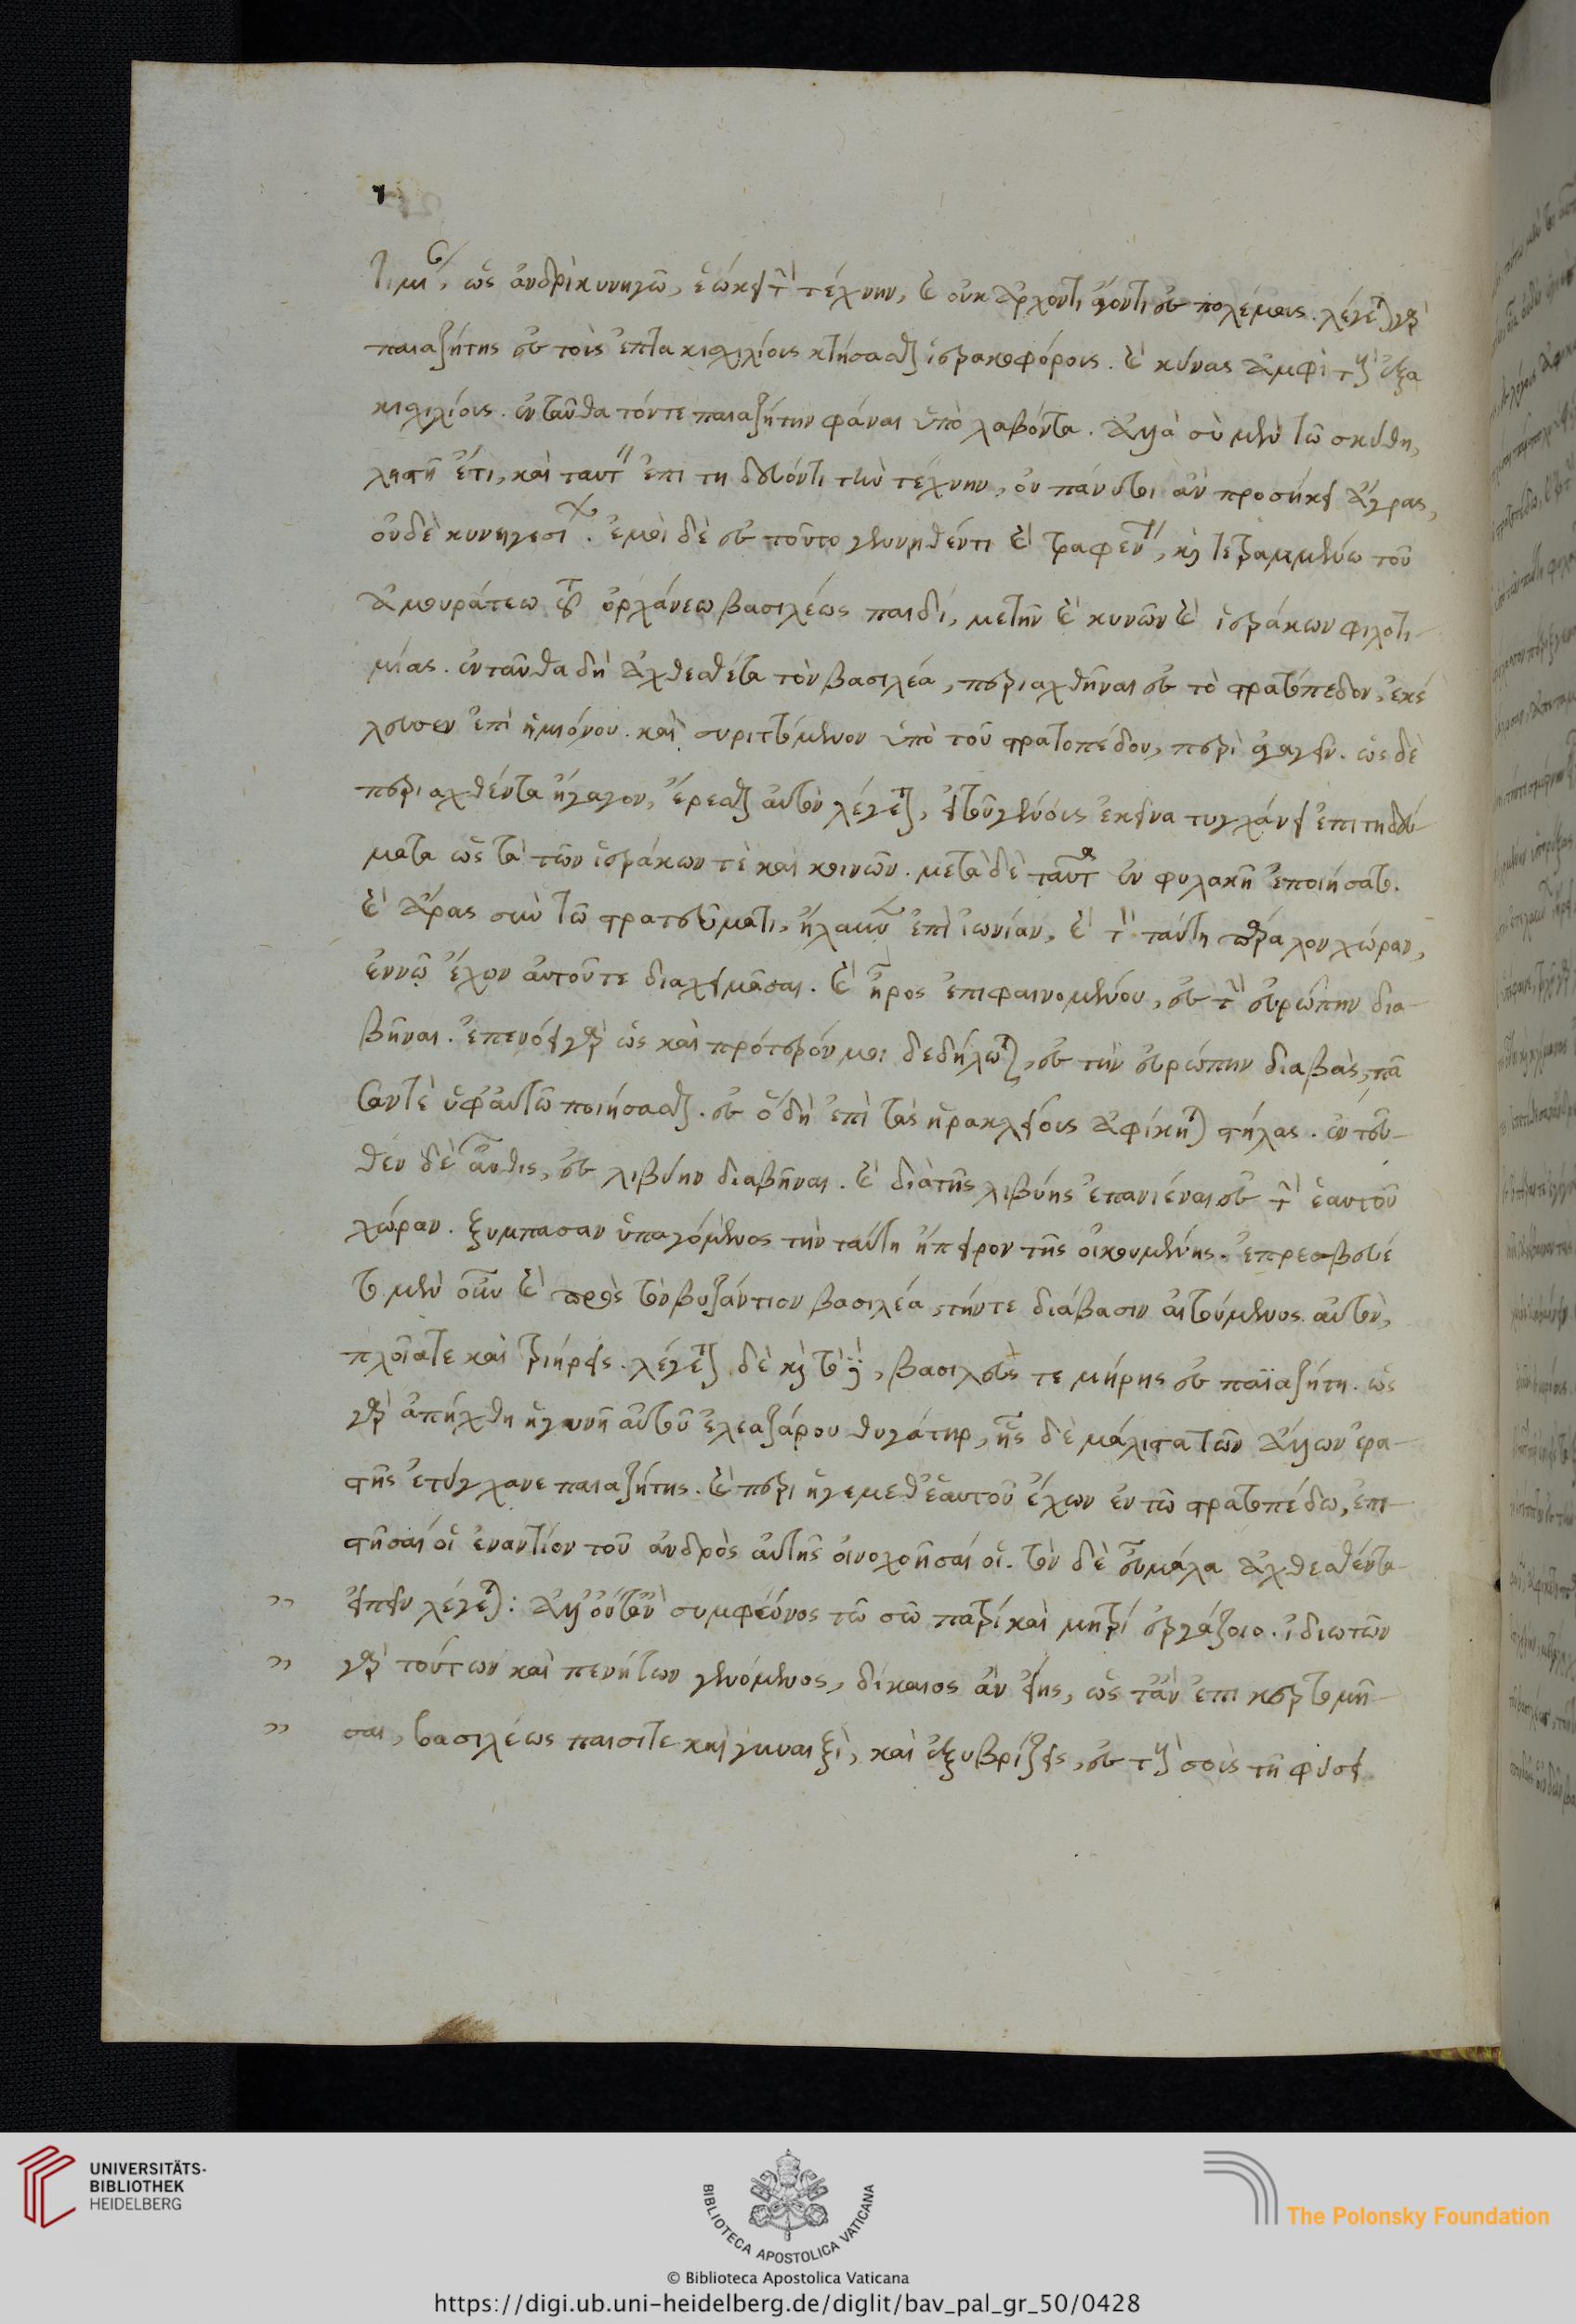 τιμι, ὡς ἀνδρὶ κυνηγῶ, ἐώκει τὴν τέχνην, καὶ οὐκ ἄρχοντι ἄγοντι ἐς πολέμους. λέγεται γὰρ
παιαζήτης ἐς τοὺς ἑπτακισχιλίους κτήσασθαι ἱερακοφόρους. καὶ κύνας ἀμφὶ τοὺς ἑξα
κισχιλίους. ἐνταῦθα τόντε παιαζήτην φάναι ὑπολαβόντα. ἀλλὰ σὺ μὲν τῶ σκύθη,
ληστῆ ἔτι, καὶ ταύτην ἐπιτηδεύοντι τὴν τέχνην, οὐ πάνυ τοι ἂν προσήκει ἄγρας,
οὐδὲ κυνηγεσίων. ἐμοὶ δὲ ἐς τοῦτο γενομένω καὶ τραφέντι, καὶ τεθραμμένω τοῦ
ἀμουράτεω τοῦ ὀρχάνεω βασιλέως παιδί, μετῆν καὶ κυνῶν καὶ ἱεράκων φιλοτι-
μίας. ἐνταῦθα δὴ ἀχθεσθέντα τὸν βασιλέα, περιαχθῆναι ἐς τὸ στρατόπεδον, ἐκέ
λευσεν ἐπὶ ἡμιόνου. καὶ συριττόμενον ὑπὸ τοῦ στρατοπέδου, περὶ ἄγαγεῖν. ὡς δὲ
περιαχθέντα ἤγαγον, ἔρεσθαι αὐτὸν λέγεται, εἰ τοῦ γένους ἐκείνα τυγχάνει ἐπιτηδεύ-
ματα ὡς τὰ τῶν ἱεράκων τὲ καὶ κοινῶν. μετὰ δὲ ταῦτα ἐν φυλακῆ ἐποιήσατο.
καὶ ἄρας σὺν τῶ στρατεύματι, ἤλαυνεν ἐπὶ ἰωνίαν, καὶ τὴν ταύτη παράλον χώραν,
ἐν νῶ ἔχων αὐτοῦτε διαχειμάσαι. καὶ ἦρος ἐπιφαινομένου, ἐς τὴν εὐρώπην δια-
βῆναι. ἐπενόει γὰρ ὡς καὶ πρότερόν μοι δεδήλωται, ἐς τὴν εὐρώπην διαβάς, πᾶ
σαντὲ ὑφ' αὑτῶ ποιήσασθαι. ἐς ὃ δὴ ἐπὶ τὰς ἡρακλείους ἀφίκηται στήλας. ἐντεῦ-
θεν δὲ αὖθις, ἐς λιβύην διαβῆναι. καὶ διὰ τῆς λιβύης ἐπανιέναι ἐς τὴν ἑαυτοῦ
χώραν. ξύμπασαν ὑπαγόμενος τὴν ταύτη ἤπειρον τῆς οἰκουμένης. ἐπρεσβεύε
το μὲν οὖν καὶ πρὸς τὸν βυζάντιον βασιλέα, τήντε διάβασιν αἰτούμενος αὐτὸν,
πλοῖάτε καὶ τριήρεις. λέγεται δὲ καὶ τοῖς, βασιλεὺς τεμήρης ἐς παϊαζήτη. ὡς
γὰρ ἀπήχθη ἡ γυνὴ αὐτοῦ ἐλεαζάρου θυγάτηρ, ἧς δὲ μάλιστα τῶν ἄλλων ἐρα-
στὴς ἐτύγχανε παιαζήτης. καὶ περιῆγε μεθ' ἑαυτοῦ ἔχων ἐν τῶ στρατοπέδω, ἐπι-
στῆσαί οἱ ἐναντίον τοῦ ἀνδρὸς αὐτῆς οἰνοχοῆσαί οἱ. τὸν δὲ εὖ μάλα ἀχθεσθέντα
" εἰπεῖν λέγεται: ἀλλ' οὔτ' ἂν συμφώνως τῶ σῶ πατρί καὶ μητρί ἐργάζοιο. ἰδιωτῶν
" γὰρ τούτων καὶ πενήτων γενόμενος, δίκαιος ἂν εἴης, ὡς τἆν ἐπικερτομῆ-
" σαι, βασιλέως παισίτε καὶ γυναιξὶ, καὶ ἐξυβρίζεις, ἐς τοὺς σοὺς τῆ φύσει
UNIVERSITÄTS-
BIBLIOTHEK
HEIDELBERG
BIBLIOTECA APOSTOLICA VATICANA
The Polonsky Foundation
© Biblioteca Apostolica Vaticana
https://digi.ub.uni-heidelberg.de/diglit/bav_pal_gr_50/0428